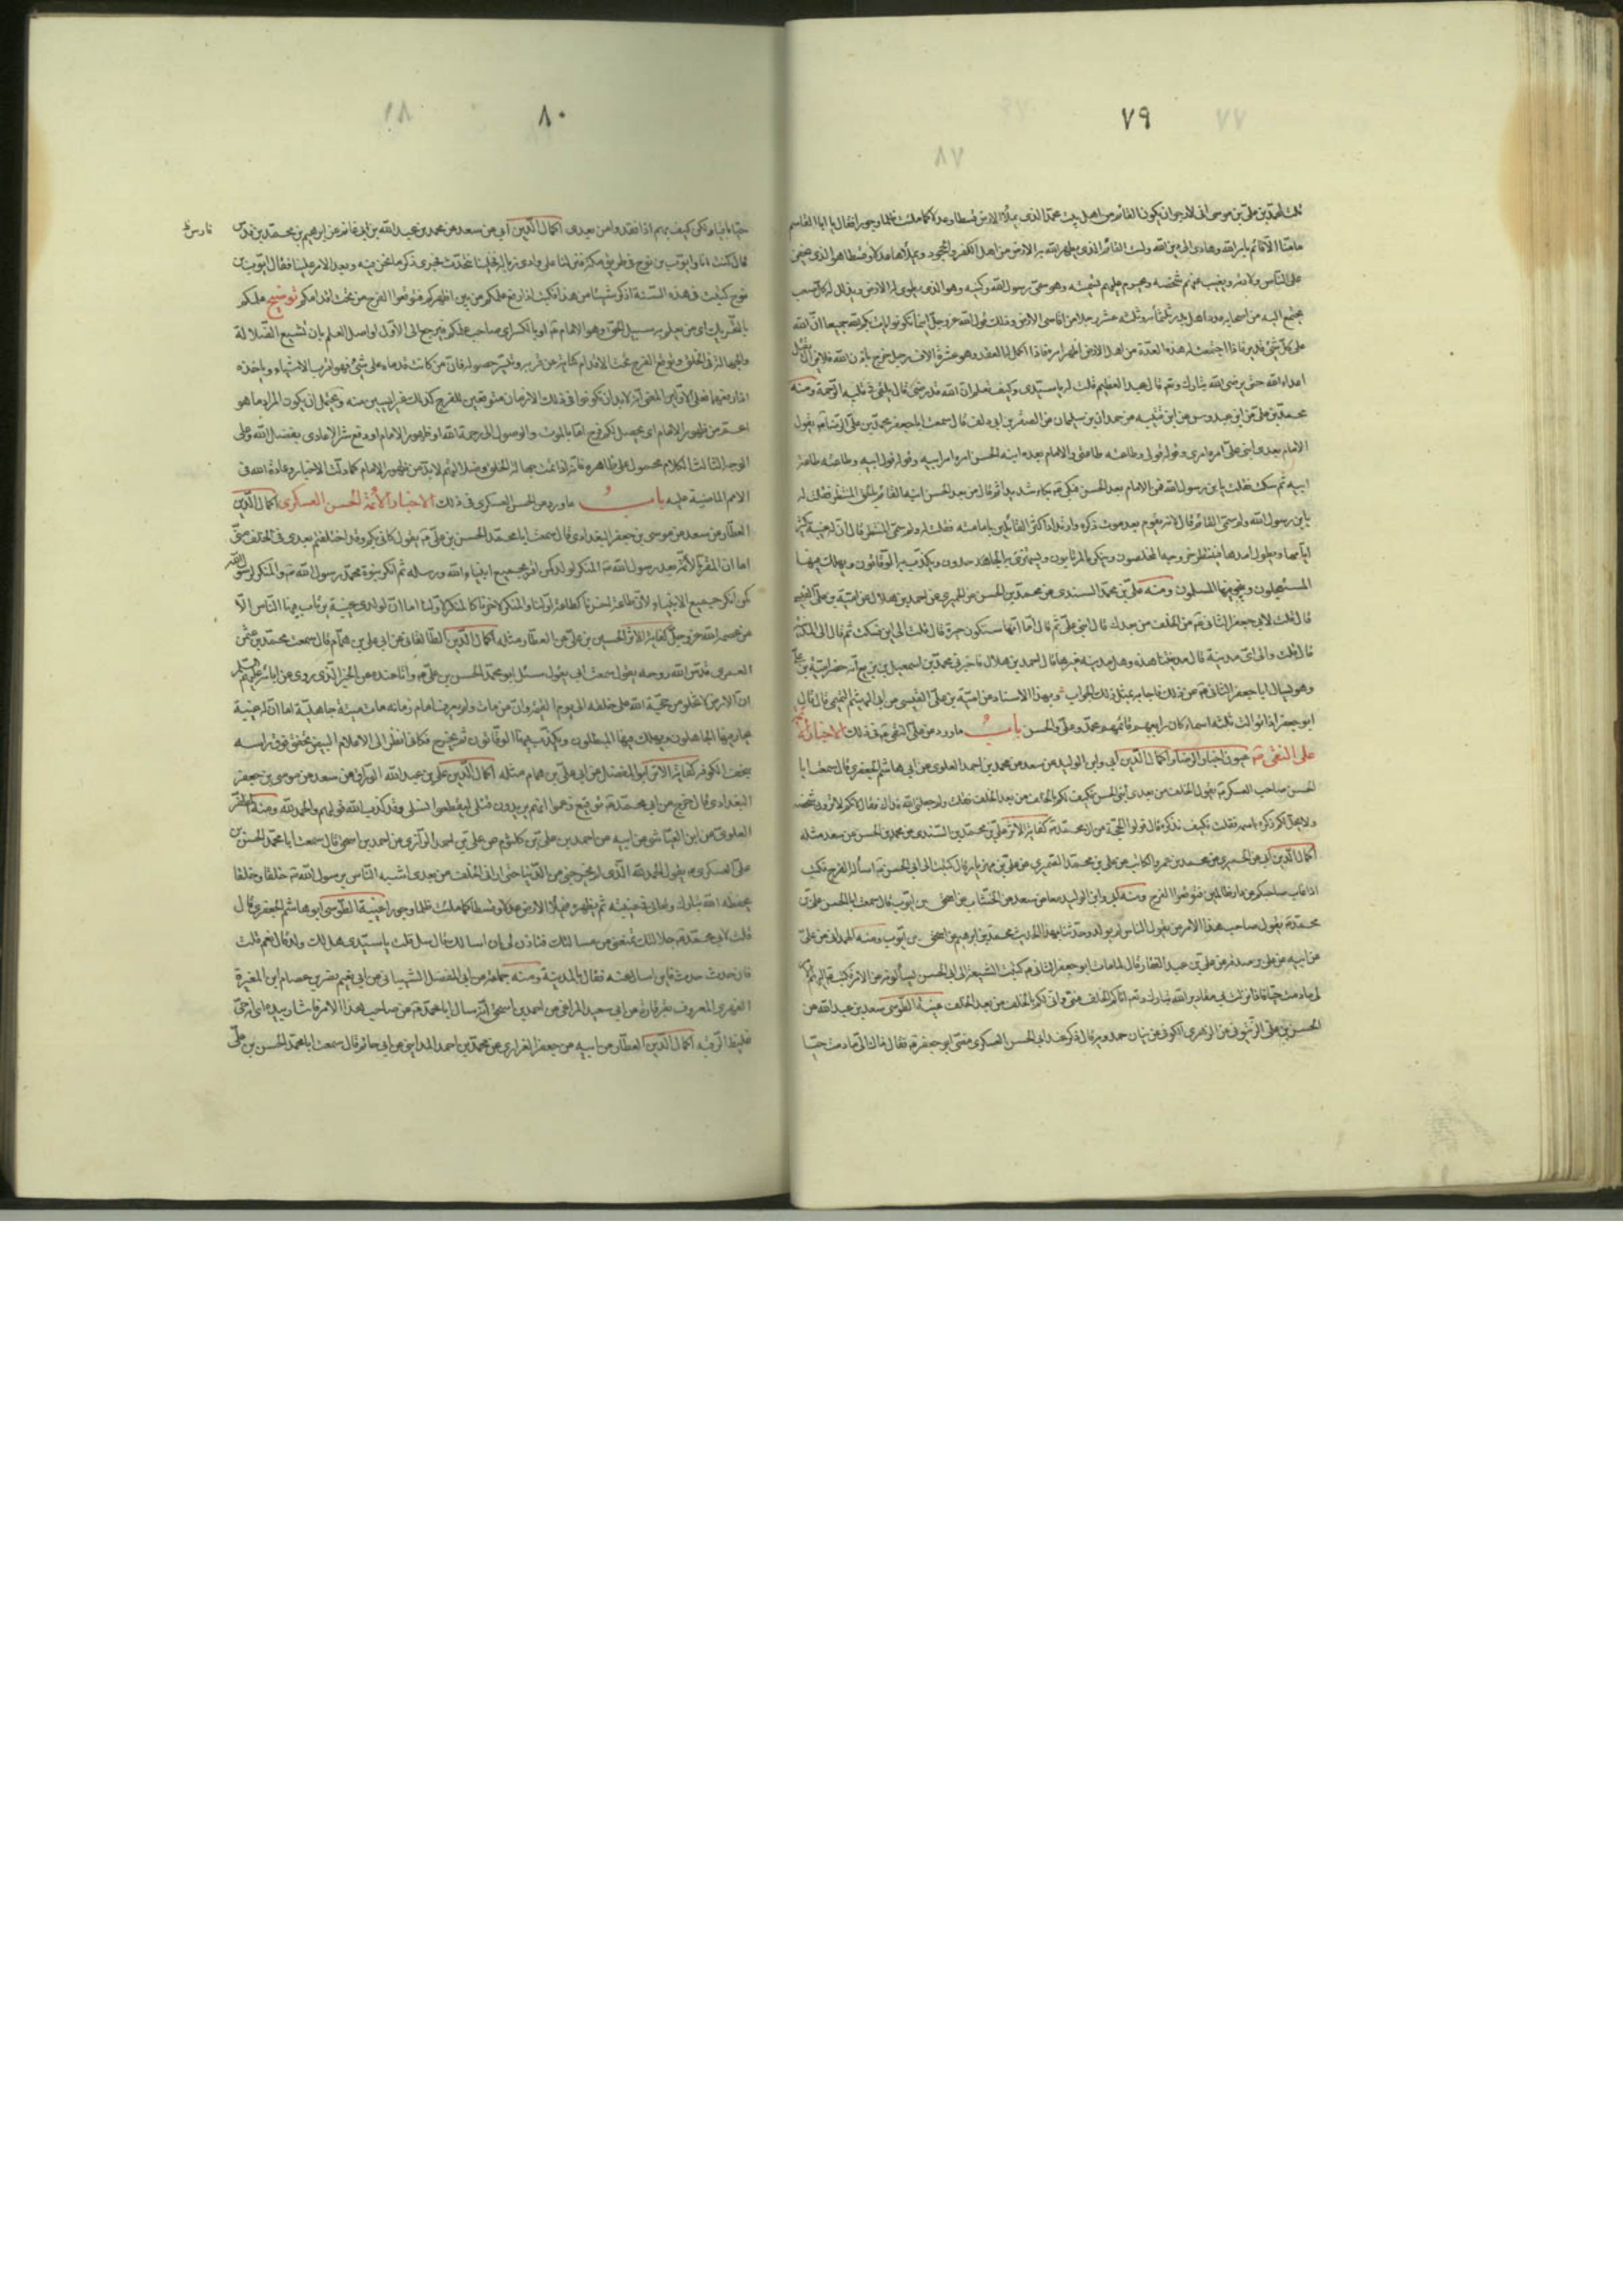 ٧٩
لمحمد بن علي بن موسى اني لارجو ان يكون القائم من اهل بيت محمد الذي يملأ الارض قسطا وعدلا كما ملئت ظلما وجورا فقال يا ابا القاسم
ما منا الا قائم بامر الله وهادى الى دين الله ولست القائم الذي يطهر الله به الارض من اهل الكفر والجحود ويملأها عدلا وقسطا هو الذي يخفى
على الناس ولادته ويغيب عنهم شخصه ويحرم عليهم تسميته وهو سمي رسول الله وكنيه وهو الذي يطوى له الارض ويذل له كل صعب
يجتمع اليه من اصحابه عدد اهل بدر ثلثمائة وثلثة عشر رجلا من اقاصى الارض وذلك قول الله عز وجل اينما تكونوا يات بكم الله جميعا ان الله
على كل شئ قدير فاذا اجتمعت له هذه العدة من اهل الارض اظهر امره فاذا اكمل له العقد وهو عشرة الاف رجل خرج باذن الله فلا يزال يقتل
اعداء الله حتى يرضى الله تبارك وتع قال عبد العظيم قلت له يا سيدى وكيف يعلم ان الله قد رضى قال يلقى في قلبه الرحمة ومنه
محمد بن علي عن ابن عبدوس عن ابن قتيبه عن حمدان بن سليمان عن الصقر بن ابى دلف قال سمعت ابا جعفر محمد بن علي الرضا يقول
الامام بعدى ابنى على امره امرى وقوله قولى وطاعته طاعتى والامام بعده ابنه الحسن امره امر ابيه وقوله قول ابيه وطاعته طاعة
ابيه ثم سكت فقلت يا بن رسول الله فمن الامام بعد الحسن فبكى بكاء شديدا ثم قال من بعد الحسن ابنه القائم بالحق المنتظر فقلت له
يا بن رسول الله ولم سمى القائم قال لانه يقوم بعد موت ذكره وارتداد اكثر القائلين بامامته فقلت له ولم سمى المنتظر قال ان له غيبة يكثر
ايامها ويطول امدها فينتظر خروجه المخلصون وينكره المرتابون ويستهزئ به الجاحدون ويكذب بها الوقاتون ويهلك فيها
المستعجلون وينجو فيها المسلمون ومنه على بن محمد السندى عن محمد بن الحسن عن الحميرى عن احمد بن هلال عن امية بن على القيسى
قال قلت لابى جعفر الثانى من الخلف من بعدك قال ابنى على ثم قال اما انها ستكون حيرة قال قلت الى اين فسكت ثم قال الى المدينة
قال قلت والى اى مدينة قال مدينتنا هذه وهل مدينة غيرها قال احمد بن هلال فاخبرنى محمد بن اسمعيل بن بزيع انه حضر امية بن على
وهو يسال ابا جعفر الثانى عن ذلك فاجابه بمثل ذلك الجواب وبهذا الاسناد عن امية بن على القيسى عن ابى الهيثم التميمى قال قال
ابو جعفر اذا توالت ثلثة اسماء كان رابعهم قائمهم محمد وعلى والحسن باب ما ورد من على النقى في ذلك الاخبار الائمة
على النقى عيون اخبار الرضا واكمال الدين ابى وابن الوليد عن سعد عن محمد بن احمد العلوى عن ابى هاشم الجعفرى قال سمعت ابا
الحسن صاحب العسكر يقول الخلف من بعدى ابنى الحسن فكيف لكم بالخلف من بعد الخلف فقلت ولم جعلنى الله فداك فقال لانكم لا ترون شخصه
ولا يحل لكم ذكره باسمه فقلت فكيف نذكره قال قولوا الحجة من ال محمد كفاية الاثر على بن محمد بن السندى عن محمد بن الحسن عن سعد مثله
اكمال الدين ابى عن الحميرى عن محمد بن عمر والكاتب عن على بن محمد الصيمرى عن على بن مهزيار قال كتبت الى ابى الحسن اسأله الفرج فكتب
اذا غاب صاحبكم عن دار الظالمين فتوقعوا الفرج ومنه ابى وابن الوليد معا عن سعد عن الخشاب عن اسحق بن ايوب قال سمعت ابا الحسن على بن
محمد يقول صاحب هذا الامر من يقول الناس لم يولد وحدثنا بهذا الحديث محمد بن ابرهيم عن اسحق بن ايوب ومنه الهمدانى عن على
عن ابيه عن على بن صدقة عن على بن عبد الغفار قال لما مات ابو جعفر الثانى كتبت الشيعة الى ابى الحسن يسألونه عن الامر فكتب اليهم الامر
لى ما دمت حيا فاذا نزلت بى مقادير الله تبارك وتع اتاكم الخلف منى وانى لكم بالخلف من بعد الخلف غيبة الطوسى سعد بن عبد الله عن
الحسن بن على الزيتونى عن الزهرى الكوفى عن بنان بن حمدويه قال ذكر عند ابى الحسن العسكرى مضى ابو جعفر فقال ذاك الى ما دمت حيا
٨٠
حيا باقيا ولكن كيف بهم اذا فقدوا من بعدى اكمال الدين ابى عن سعد عن محمد بن عبيد الله بن ابى غانم عن ابرهيم بن محمد بن فارس
قال كنت انا وايوب بن نوح في طريق مكة فنزلنا على وادى زبالة فجلسنا نتحدث فجرى ذكر ما نحن فيه وبعد الامر علينا فقال ايوب بن
نوح كتبت في هذه السنة اذكر شيئا من هذا فكتب اذا رفع علمكم من بين اظهركم فتوقعوا الفرج من تحت اقدامكم توضيح علمكم
بالتحريك اى من يعلم به سبيل الحق وهو الامام او بالكسر اى صاحب علمكم فيرجع الى الاول او اصل العلم بان تشيع الضلالة
والجهالة في الخلق وتوقع الفرج تحت الاقدام كناية عن قربه وتيسر حصوله فان من كانت قدماه على شئ فهو اقرب الاشياء وياخذه
اذا رفعهما فعلى الاولين المعنى انه لابد ان تكونوا في تلك الازمان متوقعين للفرج كذلك غير ايسين منه ويحتمل ان يكون المراد ما هو
اعم من ظهور الامام اى يحصل لكم فرج اما بالموت والوصول الى رحمة الله او ظهور الامام او دفع شر الاعادى بفضل الله وعلى
الوجه الثالث الكلام محمول على ظاهره فانه اذا تمت جهالة الخلق وضلالتهم لابد من ظهور الامام كما دلت الاخبار وعادة الله في
الامم الماضية عليه باب ما ورد من الحسن العسكرى في ذلك الاخبار الائمة الحسن العسكرى اكمال الدين
العطار عن سعد عن موسى بن جعفر البغدادى قال سمعت ابا محمد الحسن بن على يقول كانى بكم وقد اختلفتم بعدى في الخلف منى
اما ان المقر بالائمة بعد رسول الله المنكر لولدى كمن اقر بجميع انبياء الله ورسله ثم انكر نبوة محمد رسول الله والمنكر لرسول الله
كمن انكر جميع الانبياء لان طاعة اخرنا كطاعة اولنا والمنكر لاخرنا كالمنكر لاولنا اما ان لولدى غيبة يرتاب فيها الناس الا
من عصمه الله عز وجل كفاية الاثر الحسين بن على عن العطار مثله اكمال الدين الطالقانى عن ابى على بن همام قال سمعت محمد بن عثمن
العمرى قدس الله روحه يقول سمعت ابى يقول سئل ابو محمد الحسن بن على وانا عنده عن الخبر الذى روى عن ابائه عليهم السلم
ان الارض لا تخلو من حجة الله على خلقه الى يوم القيمة وان من مات ولم يعرف امام زمانه مات ميتة جاهلية اما ان له غيبة
يحار فيها الجاهلون ويهلك فيها المبطلون ويكذب فيها الوقاتون ثم يخرج فكانى انظر الى الاعلام البيض تخفق فوق راسه
بنجف الكوفة كفاية الاثر ابو المفضل عن ابى على بن همام مثله اكمال الدين على بن عبد الله الوراق عن سعد عن موسى بن جعفر
البغدادى قال خرج من ابى محمد توقيع زعموا انهم يريدون قتلى ليقطعوا النسل وقد كذب الله قولهم والحمد لله ومنه المظفر
العلوى عن ابن العياشى عن ابيه عن احمد بن على بن كلثوم عن على بن احمد الرازى عن احمد بن اسحق قال سمعت ابا محمد الحسن بن
على العسكرى يقول الحمد لله الذى لم يخرجنى من الدنيا حتى ارانى الخلف من بعدى اشبه الناس برسول الله خلقا وخلقا
يحفظه الله تبارك وتعالى في غيبته ثم يظهره فيملأ الارض عدلا وقسطا كما ملئت ظلما وجورا غيبة الطوسى ابو هاشم الجعفرى قال
قلت لابى محمد جلالتك تمنعنى عن مسالتك فتاذن لى ان اسالك قال سل قلت يا سيدى هل لك ولد قال نعم قلت
فان حدث حدث فاين اسال عنه فقال بالمدينة ومنه جماعة عن ابى المفضل الشيبانى عن ابى نعيم نصر بن عصام بن المغيرة
الفهرى المعروف بقرقارة عن ابى سعيد المراغى عن احمد بن اسحق انه سال ابا محمد عن صاحب هذا الامر فاشار بيده اى انه حى
غليظ الرقبة اكمال الدين العطار عن ابيه عن جعفر الفزارى عن محمد بن احمد المداينى عن ابى حاتم قال سمعت ابا محمد الحسن بن على